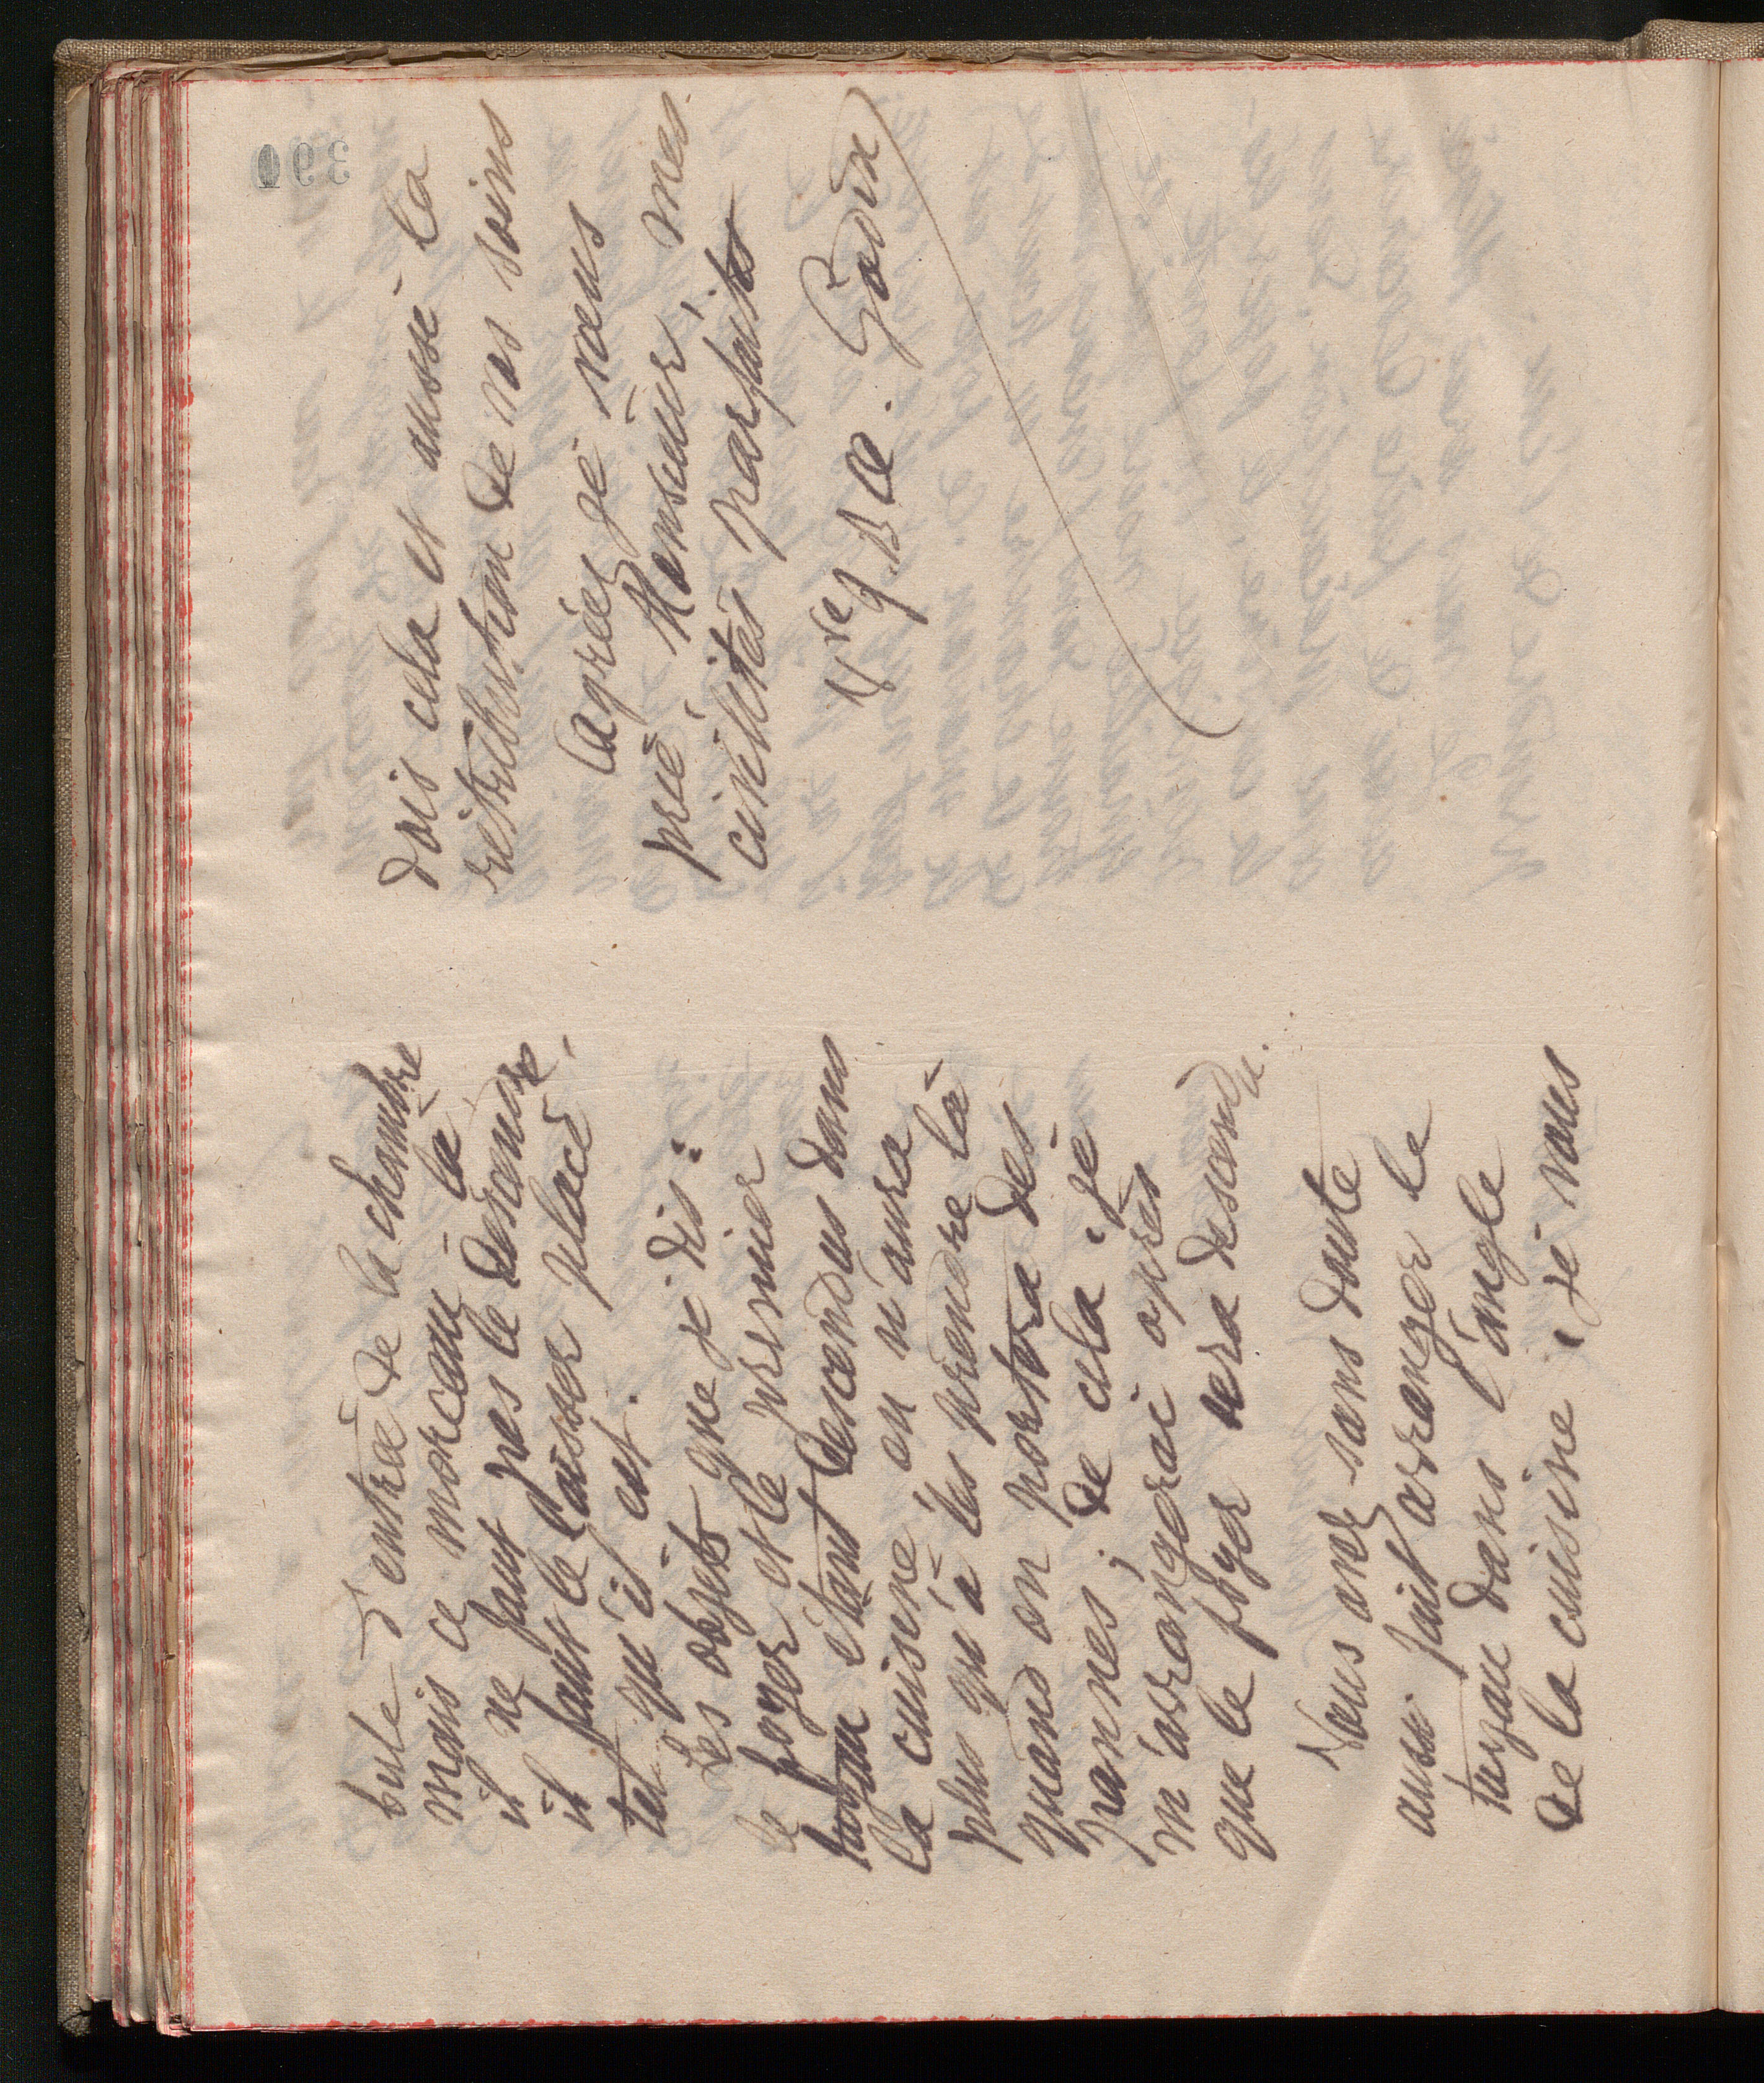 bule d'entrée de la chambre
mais ce morceau là
il ne faut pas le descendre,
il faut le laisser placé
tel qu'il est.
Les objets que je dis :
le foyer et le premier
tuyau étant descendus dans
la cuisine, on n'aura
plus qu'à les prendre là
quand on portera des
pannes; de cela je
m'arrangerai après
que le foyer sera descendu.
Vous avez sans doute
aussi fait arranger le
tuyau dans l'angle
de la cuisine ; je vous
dois cela et aussi la
rétribution de vos soins
Agréez je vous
prie, Monsieur, mes
civilités parfaites
Vve J. B. A. Godin
390